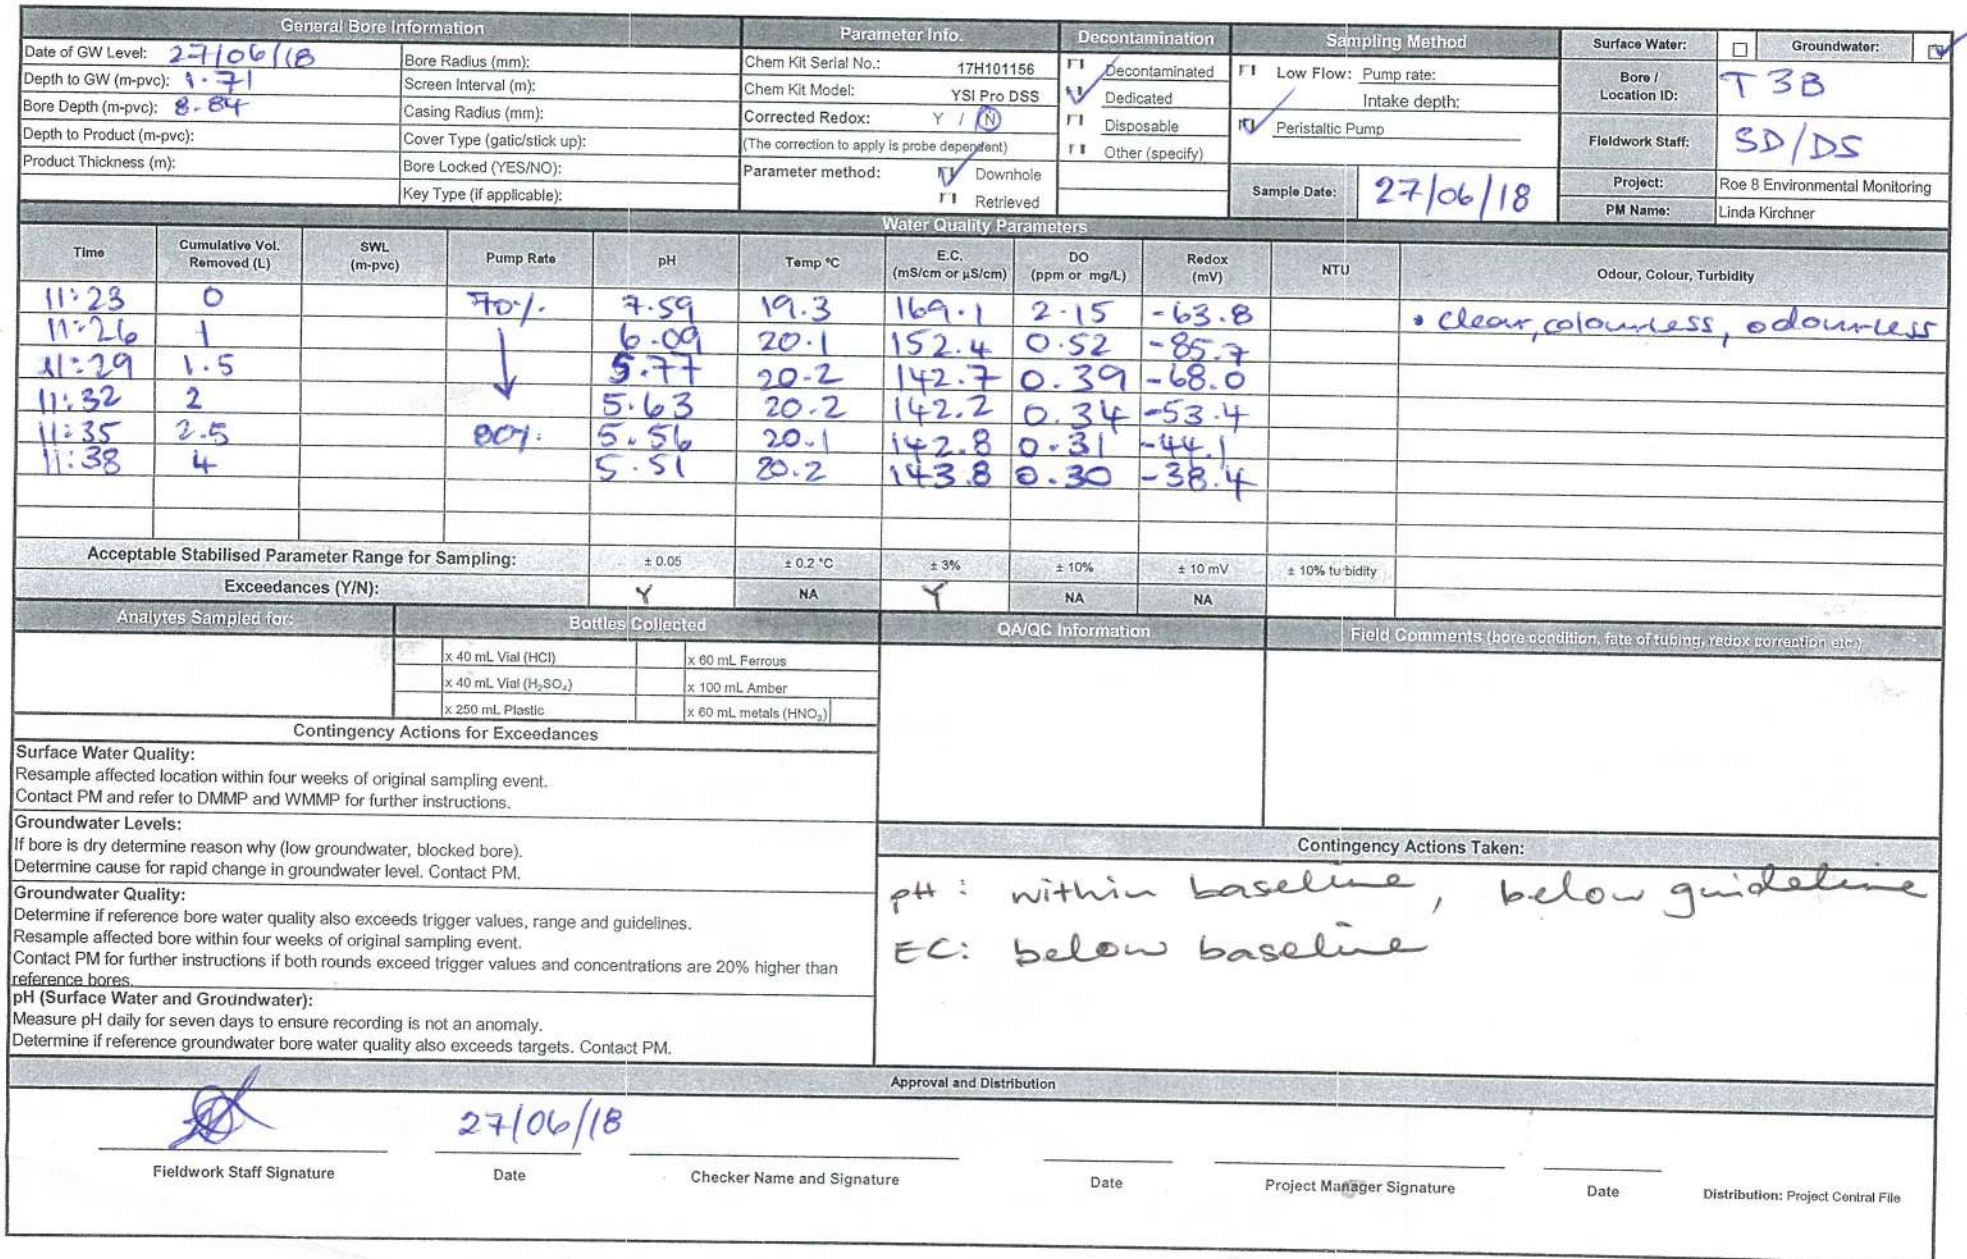 General Bore Information
Date of GW Level: 27/06/18
Bore Radius (mm):
Depth to GW (m-pvc): 1.71
Screen Interval (m):
Bore Depth (m-pvc): 8.84
Casing Radius (mm):
Depth to Product (m-pvc):
Cover Type (gatic/stick up):
Product Thickness (m):
Bore Locked (YES/NO):
Key Type (if applicable):
Parameter Info.
Chem Kit Serial No.: 17H101156
Chem Kit Model: YSI Pro DSS
Corrected Redox: Y / N
(The correction to apply is probe dependent)
Parameter method: Downhole
Retrieved
Decontamination
Decontaminated
Dedicated
Disposable
Other (specify)
Sampling Method
Low Flow: Pump rate:
Intake depth:
Peristaltic Pump
Sample Date: 27/06/18
Surface Water: Groundwater:
Bore / Location ID: T3B
Fieldwork Staff: SD/DS
Project: Roe 8 Environmental Monitoring
PM Name: Linda Kirchner
Water Quality Parameters
Time Cumulative Vol. Removed (L) SWL (m-pvc) Pump Rate pH Temp °C E.C. (mS/cm or µS/cm) DO (ppm or mg/L) Redox (mV) NTU Odour, Colour, Turbidity
11:23 0 70% 7.59 19.3 169.1 2.15 -63.8 • clear, colourless, odourless
11:26 1 6.09 20.1 152.4 0.52 -85.7
11:29 1.5 5.77 20.2 142.7 0.39 -68.0
11:32 2 5.63 20.2 142.2 0.34 -53.4
11:35 2.5 80% 5.56 20.1 142.8 0.31 -44.1
11:38 4 5.51 20.2 143.8 0.30 -38.4
Acceptable Stabilised Parameter Range for Sampling: ± 0.05 ± 0.2 °C ± 3% ± 10% ± 10 mV ± 10% turbidity
Exceedances (Y/N): Y NA Y NA NA
Analytes Sampled for:
Bottles Collected
x 40 mL Vial (HCl) x 60 mL Ferrous
x 40 mL Vial (H₂SO₄) x 100 mL Amber
x 250 mL Plastic x 60 mL metals (HNO₃)
QA/QC Information
Field Comments (bore condition, fate of tubing, redox correction etc.)
Contingency Actions for Exceedances
Surface Water Quality:
Resample affected location within four weeks of original sampling event.
Contact PM and refer to DMMP and WMMP for further instructions.
Groundwater Levels:
If bore is dry determine reason why (low groundwater, blocked bore).
Determine cause for rapid change in groundwater level. Contact PM.
Groundwater Quality:
Determine if reference bore water quality also exceeds trigger values, range and guidelines.
Resample affected bore within four weeks of original sampling event.
Contact PM for further instructions if both rounds exceed trigger values and concentrations are 20% higher than
reference bores.
pH (Surface Water and Groundwater):
Measure pH daily for seven days to ensure recording is not an anomaly.
Determine if reference groundwater bore water quality also exceeds targets. Contact PM.
Contingency Actions Taken:
pH: within baseline, below guideline
EC: below baseline
Approval and Distribution
27/06/18
Fieldwork Staff Signature Date Checker Name and Signature Date Project Manager Signature Date Distribution: Project Central File